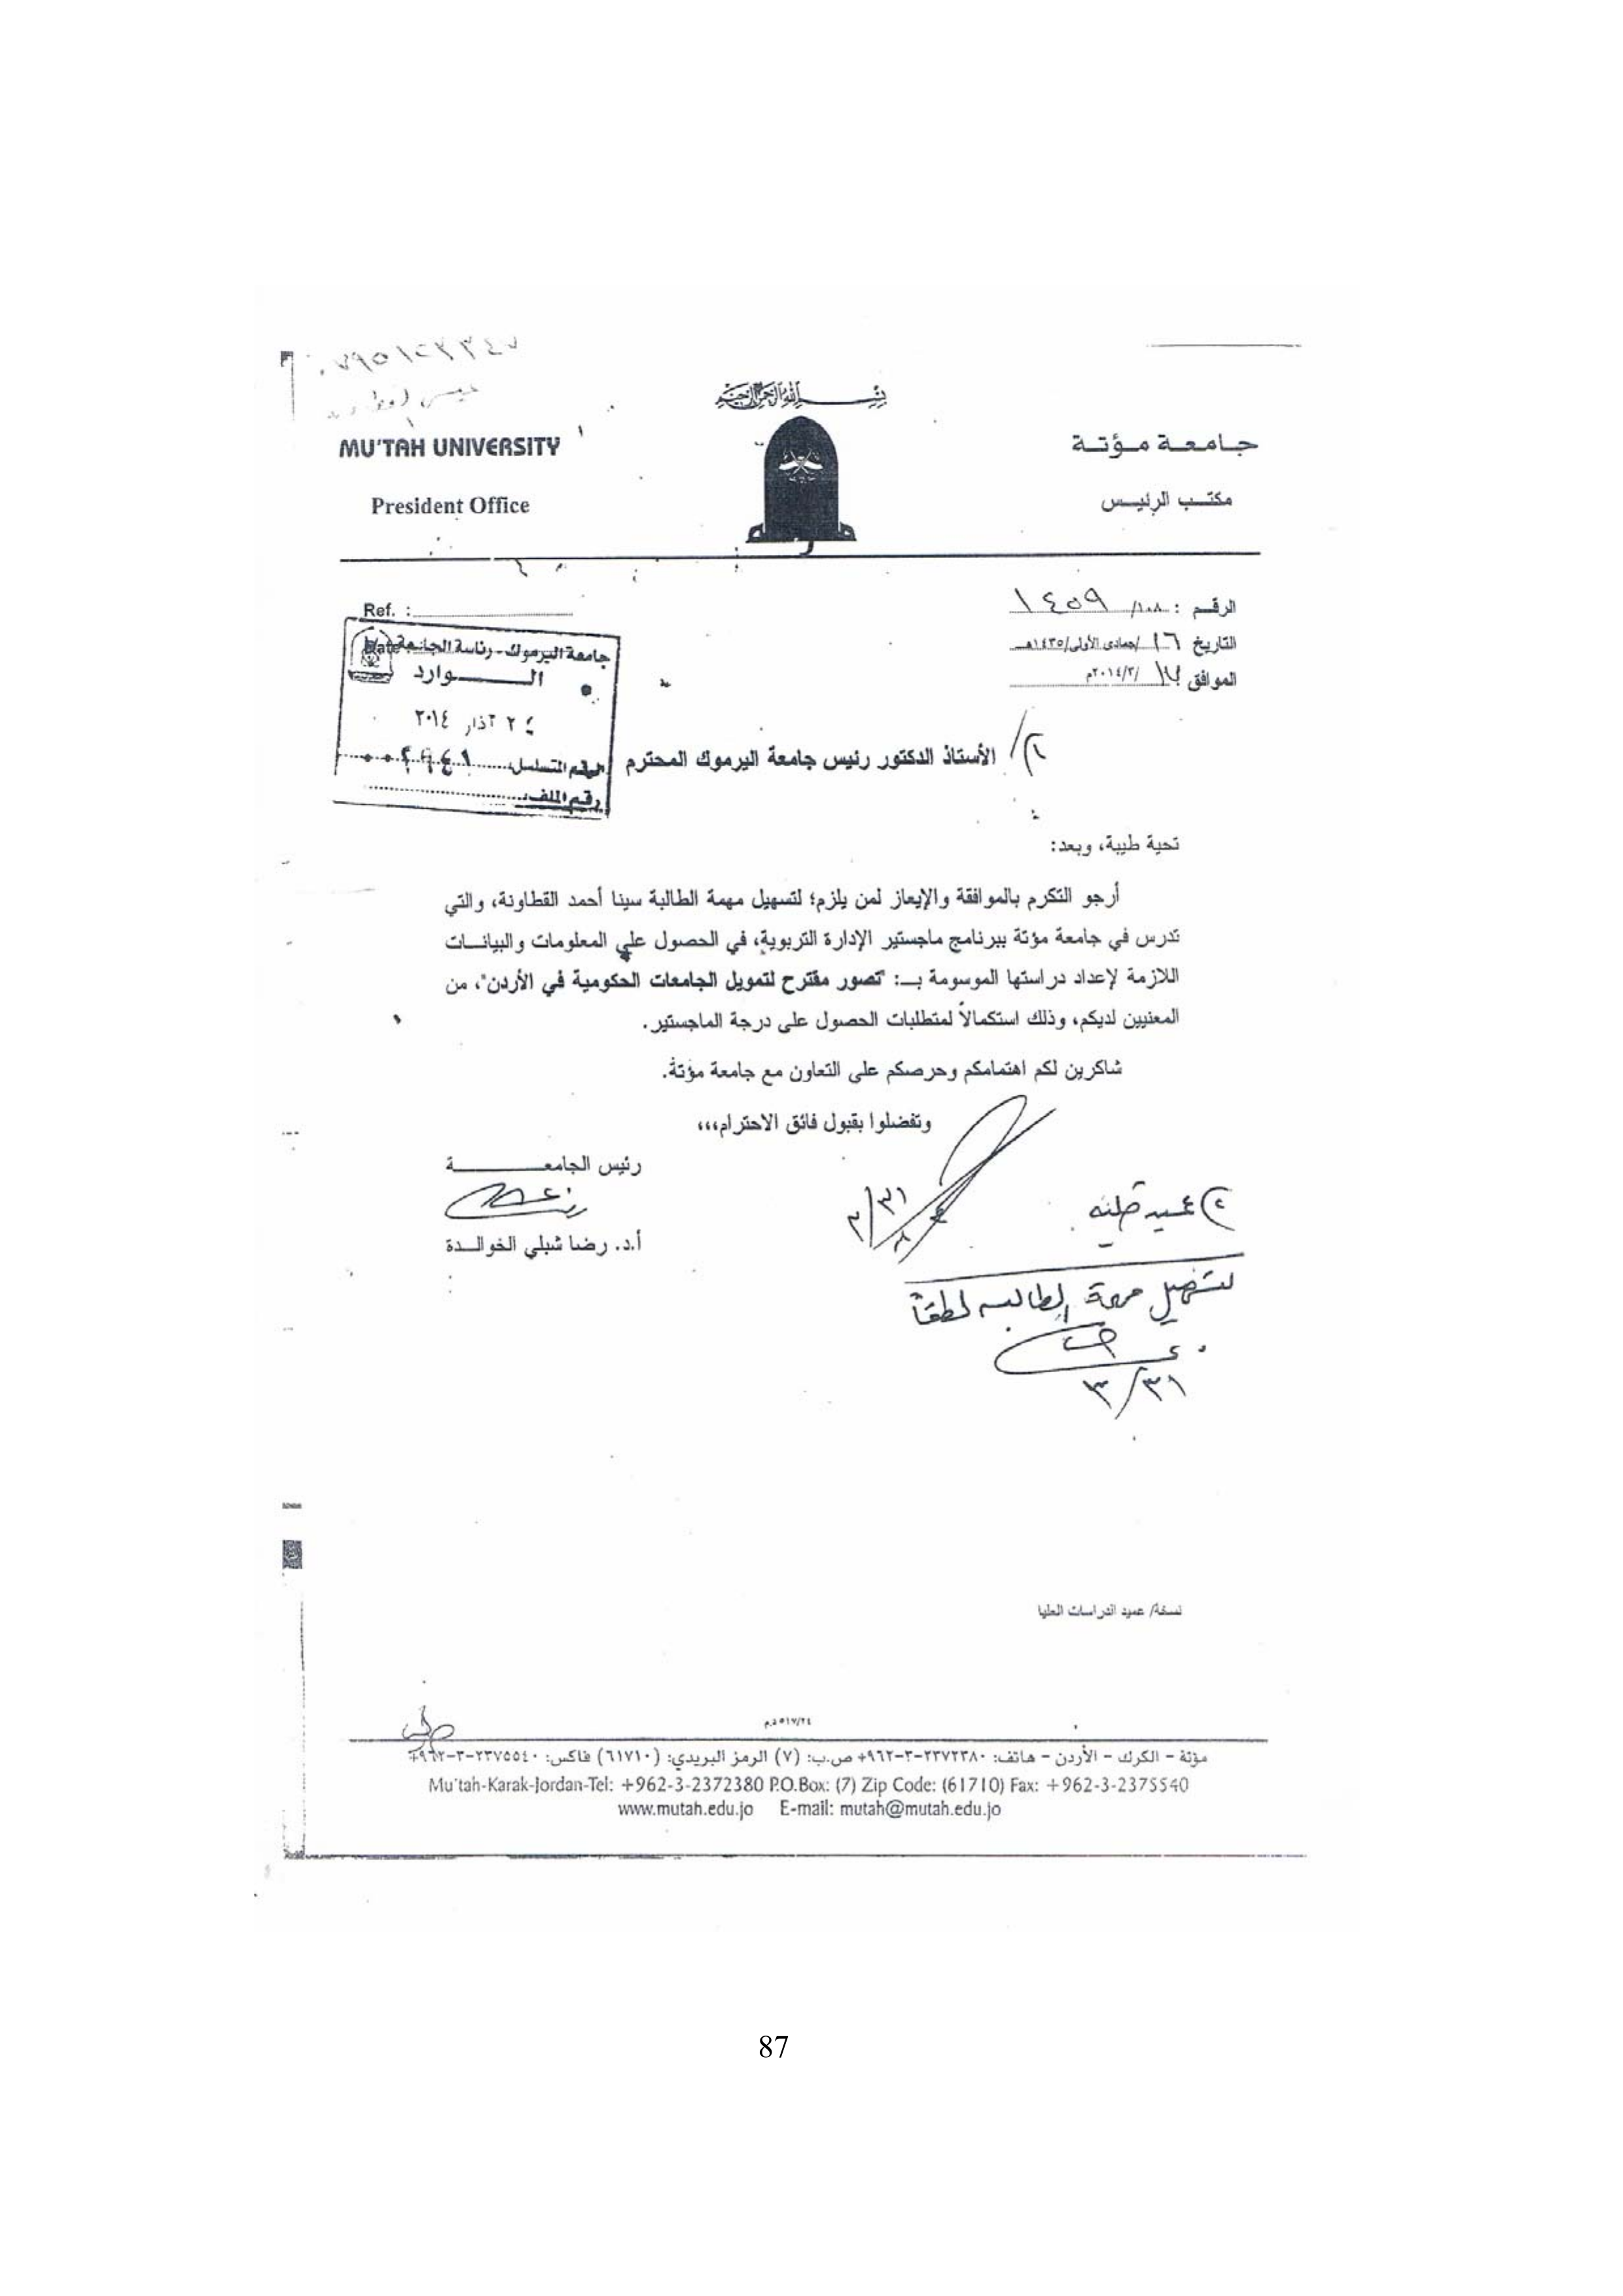 بسم الله الرحمن الرحيم
جامعة مؤتة
MU'TAH UNIVERSITY
مكتب الرئيس
President Office
الرقم : ١٠٨/ ١٤٥٩
Ref. :
التاريخ ١٦ /جمادى الأولى/١٤٣٥هـ
الموافق ١٧ /٢٠١٤/٣م
جامعة اليرموك - رئاسة الجامعة
الوارد
آذار ٢٠١٤
الرقم المتسلسل
رقم الملف
الأستاذ الدكتور رئيس جامعة اليرموك المحترم
تحية طيبة، وبعد:
أرجو التكرم بالموافقة والإيعاز لمن يلزم؛ لتسهيل مهمة الطالبة سينا أحمد القطاونة، والتي
تدرس في جامعة مؤتة ببرنامج ماجستير الإدارة التربوية، في الحصول على المعلومات والبيانات
اللازمة لإعداد دراستها الموسومة بـ: "تصور مقترح لتمويل الجامعات الحكومية في الأردن"، من
المعنيين لديكم، وذلك استكمالاً لمتطلبات الحصول على درجة الماجستير.
شاكرين لكم اهتمامكم وحرصكم على التعاون مع جامعة مؤتة.
وتفضلوا بقبول فائق الاحترام،،،
رئيس الجامعة
أ.د. رضا شبلي الخوالدة
٣/٣١
لتسهيل مهمة الطالبه لطفاً
٣/٣١
نسخة/ عميد الدراسات العليا
مؤتة - الكرك - الأردن - هاتف: ٢٣٧٢٣٨٠-٣-٩٦٢+ ص.ب: (٧) الرمز البريدي: (٦١٧١٠) فاكس: ٢٣٧٥٥٤٠-٣-٩٦٢+
Mu'tah-Karak-Jordan-Tel: +962-3-2372380 P.O.Box: (7) Zip Code: (61710) Fax: +962-3-2375540
www.mutah.edu.jo E-mail: mutah@mutah.edu.jo
87